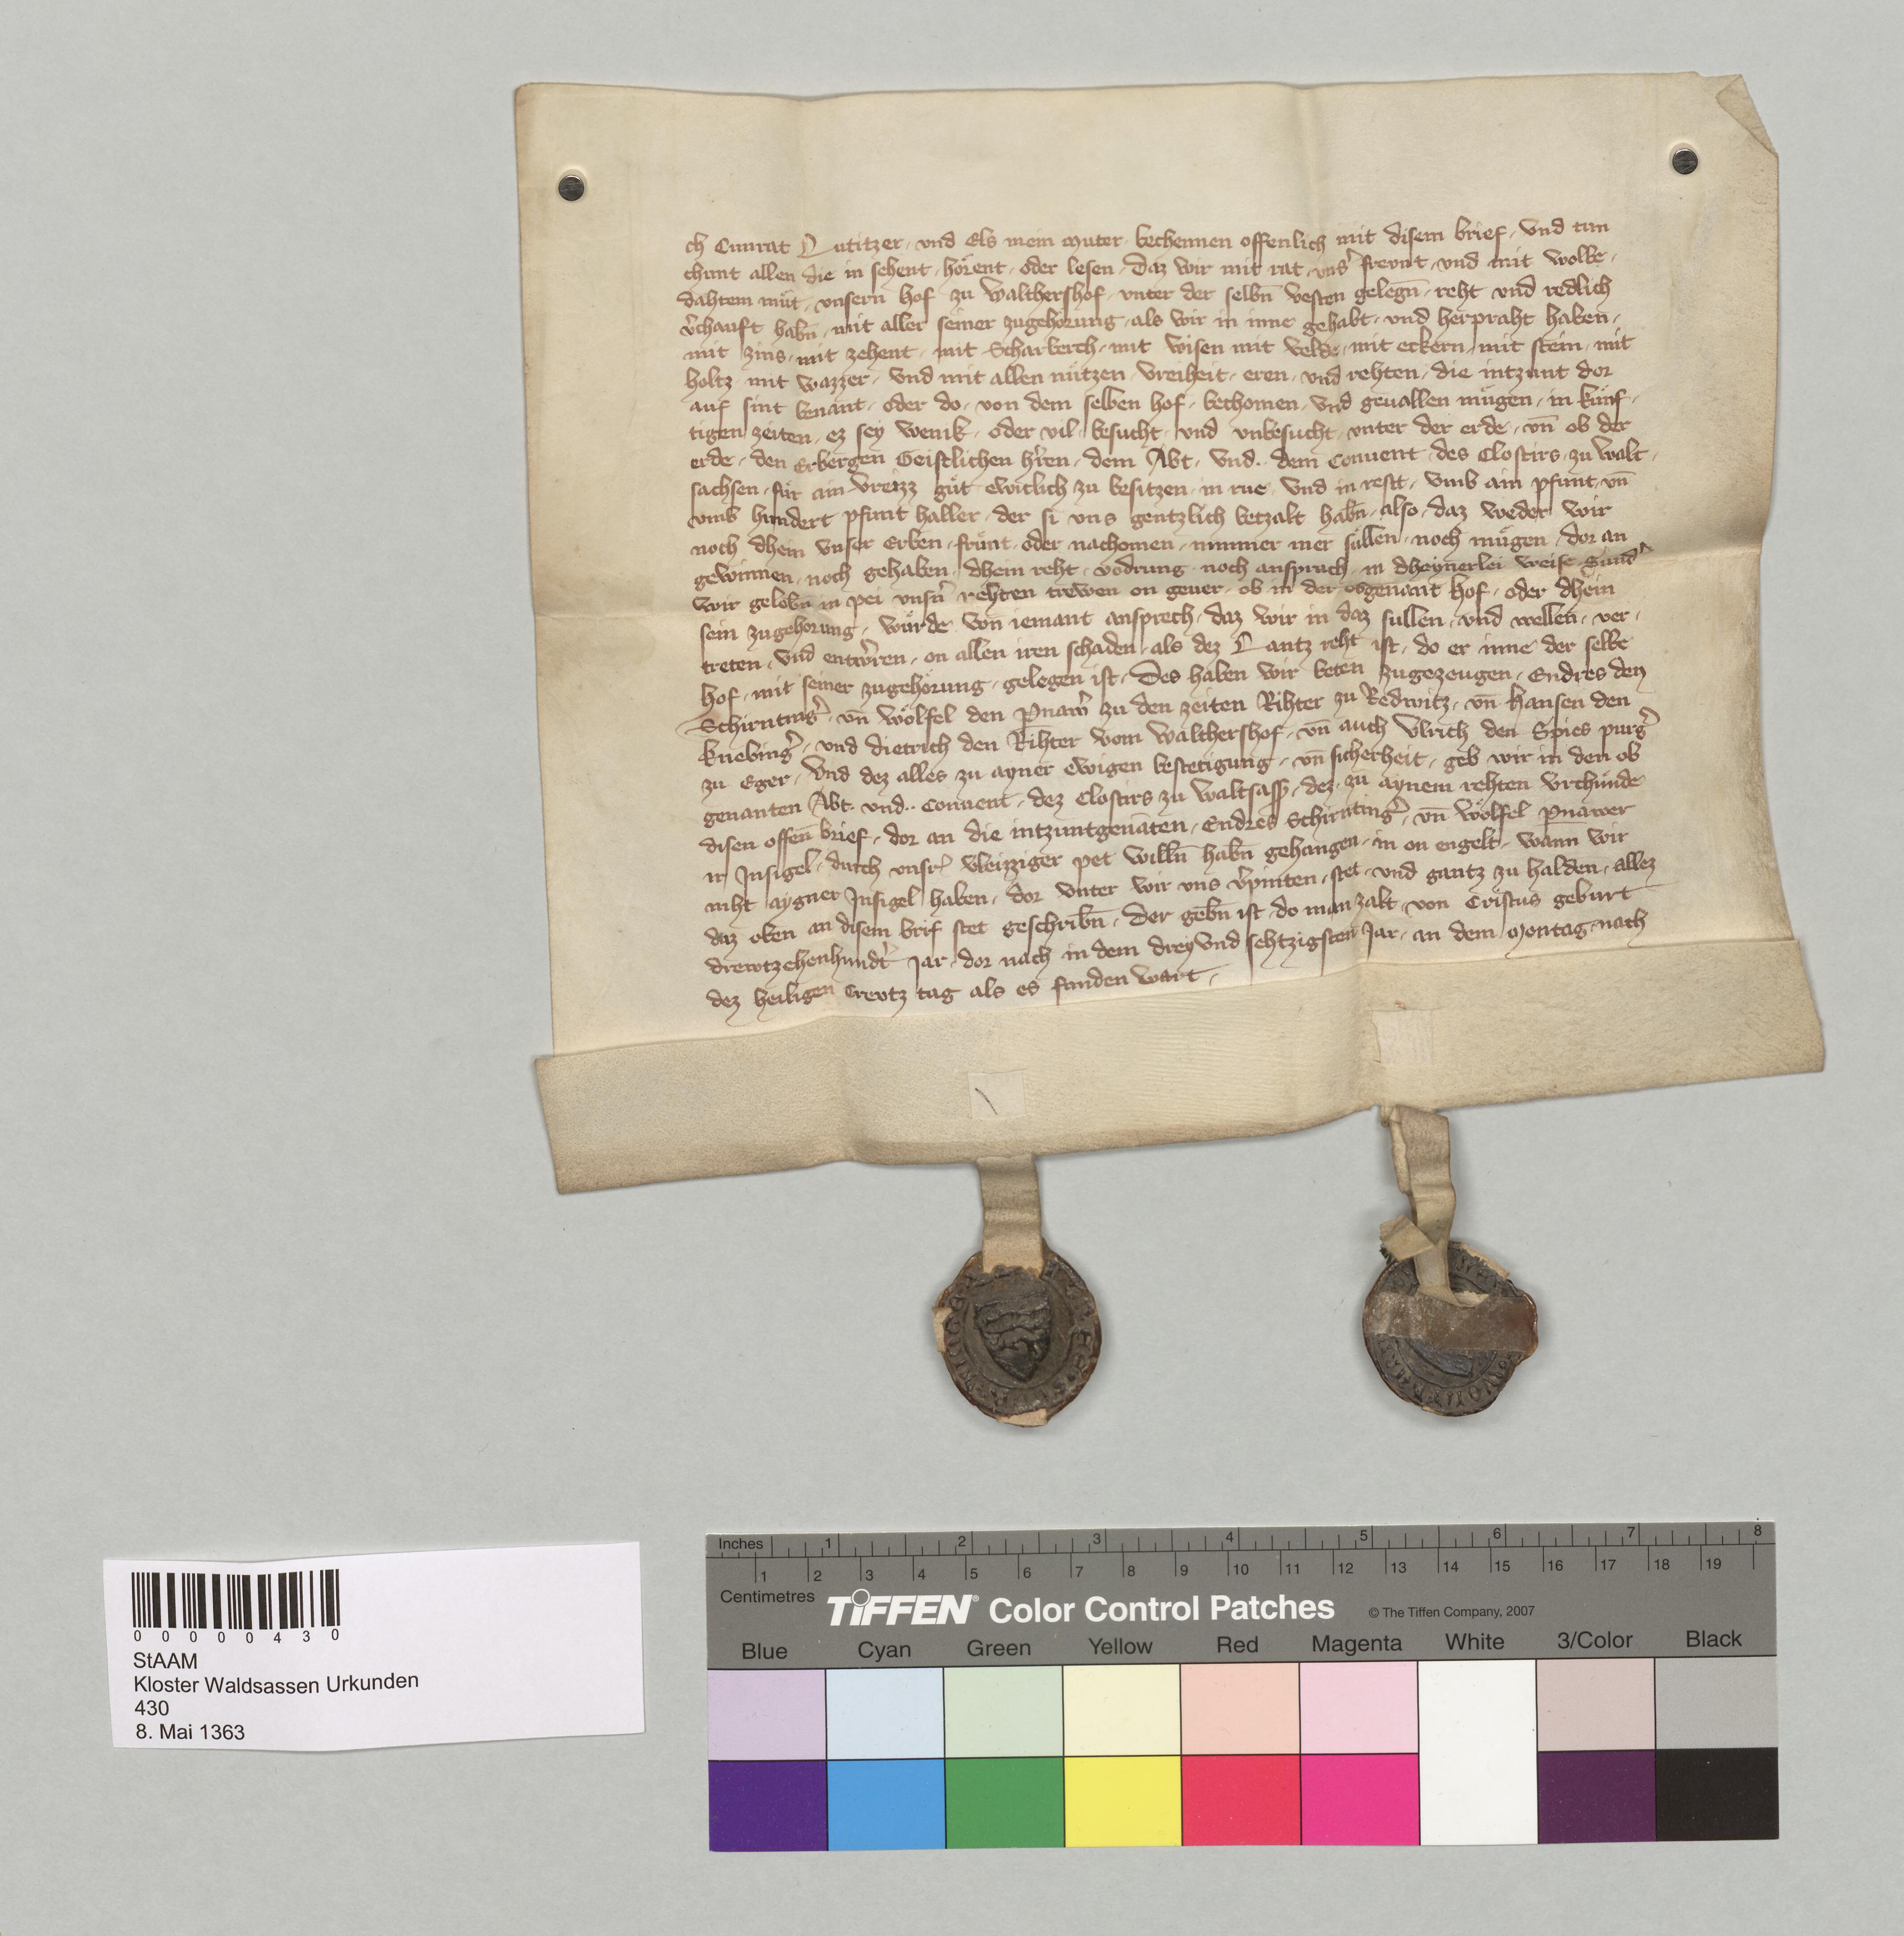 ch Cunrat Lutitzer · vnd Els mein muter · bechennen offenlich mit disem brief · Vnd tun
chunt allen die in sehent · hörent · oder lesen · Daz wir mit rat · vnsˀ frevnt · vnd mit wolbe ·
dahtem müt · vnsern hof zu Walthershof · vnter der selbn̄ vesten gelegn̄ · reht vnd redlich
vˀchauft habn̄ · mit aller seiner zugehörung · als wir in inne gehabt · vnd herpraht haben ·
mit zins · mit zehent · mit Scharberch · mit wisen mit velde · mit eckern · mit stein · mit
holtz mit wazzer · Vnd mit allen nützen · Vreiheit · eren · vnd rehten · die intzunt dor
auf sint benant · oder do · von dem selben hof · bechomen · Vnd geuallen mügen · in künf ·
tigen zeiten · ez sey wenik · oder vil · besucht · vnd vnbesucht · vnter der erde · vn̄ ob der
erde · den Erbergen Geistlichen hˀren · dem Abt · Vnd ·· dem Conuent · des Closters · zu Walt ·
sachsen · für ain Vreizz güt ewiclich zu besitzen · in rue · Vnd in restt · Vmb ain pfunt · vn̄
vmb hundert pfunt haller · der si vns gentzlich betzalt habn̄ · also · daz weder wir
noch dhein vnser Erben · frünt · oder nachomen · nimmer mer süllen · noch mügen · dor an
gewinnen · noch gehaben · dhein reht · vodrung · noch anspruch · in dheynerlei weise · Sundˀ
wir gelobn̄ in pei vnsn̄ˀ rehten trewen on geuer · ob in der obgenant hof · oder dhein
sein zugehorung · würde von iemant ansprech · daz wir in daz sullen · vnd wellen · ver ·
treten · Vnd entwˀren · on allen iren schaden · als dez Lantz reht ist · do er inne der selbe
hof · mit seiner zugehörung · gelegen ist · Des haben wir beten zugezeugen · Endres den
Schirntingˀ · vn̄ Wölfel den Pnawˀ zu den zeiten Rihter zu Redwitz · vn̄ Hansen den
knebingˀ · vnd dietrich den Rihter vom Walthershof · vn̄ auch Vlrich den Spies purgˀ
zu Eger · Vnd dez alles zu ayner Ewigen bestetigung · vn̄ sicherheit · geb wir in den ob
genanten Abt · vnd ·· Conuent · dez Closters zu Waltsass̄ · dez · zu aynem rehten Vrchünde
disen offen̄ brief · dor an die intzuntgenāten · Endres Schirntingˀ · vn̄ Wölfel Pnawer
ir Insigel · durch vnsrˀ vleizziger pet willn̄ habn̄ gehangen · in on engelt · wann wir
niht aygner Insigel haben · dor vnter wir vns vˀpinten · stet · vnd gantz zu halden · allez
daz oben an disem brif stet geschribn̄ · Der gebn̄ ist · do man zalt · von Cristus geburt
drewtzehenhundtˀ Jar · dor nach in dem drey Vnd sehtzigsten Jar · an dem Montag · nach
dez heiligen Crevtz tag als es funden wart ·
0 0 0 0 0 4 3 0
StAAM
Kloster Waldsassen Urkunden
430
8. Mai 1363
Inches 1 2 3 4 5 6 7 8
1 2 3 4 5 6 7 8 9 10 11 12 13 14 15 16 17 18 19
Centimetres TIFFEN® Color Control Patches © The Tiffen Company, 2007
Blue Cyan Green Yellow Red Magenta White 3/Color Black